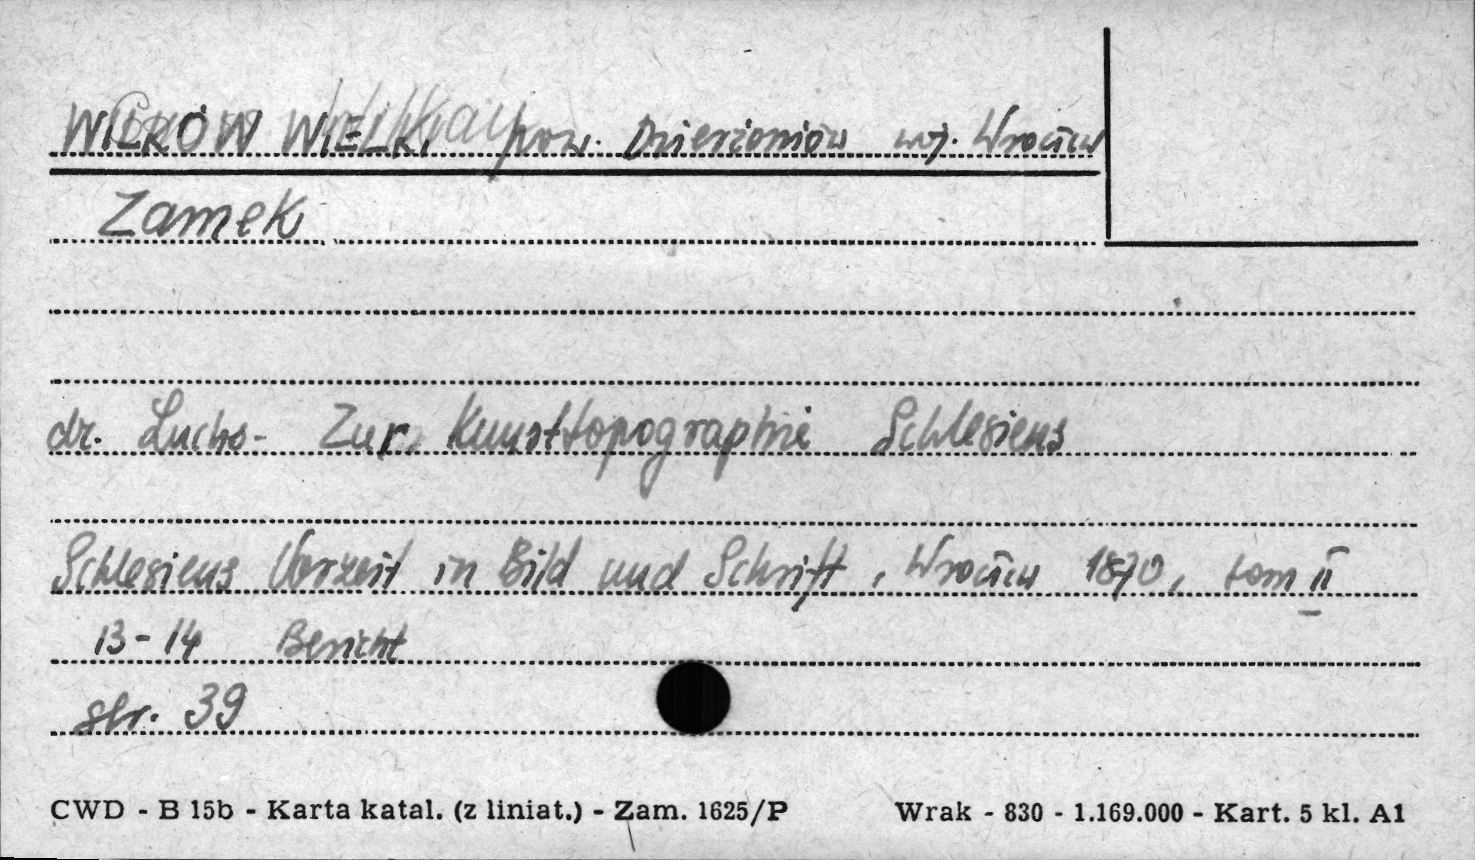 WILKÓW WIELKI pow. Dzierżoniów woj. Wrocław
Zamek
dr. Luchs - Zur Kunsttopographie Schlesiens
Schlesiens Vorzeit in Bild und Schrift, Wrocław 1870, tom II
13-14 Bericht
str. 39
CWD - B 15b - Karta katal. (z liniat.) - Zam. 1625/P Wrak - 830 - 1.169.000 - Kart. 5 kl. A1